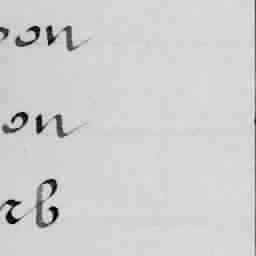 on
on
rb